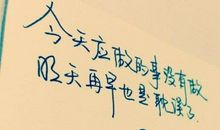 今天应做的事没有做
明天再早也是耽误了